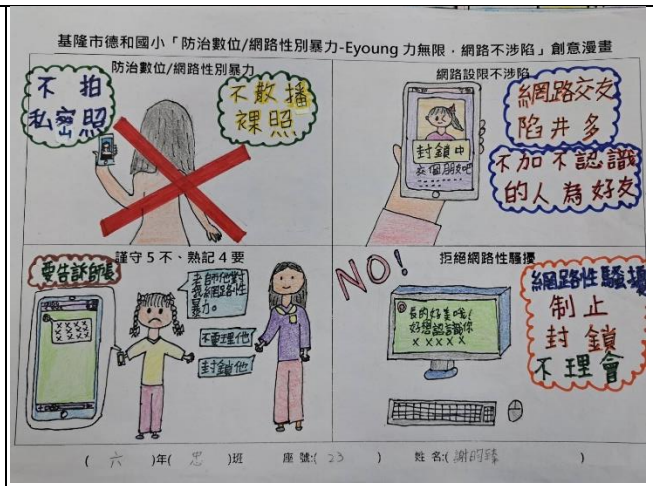 基隆市德和國小「防治數位/網路性別暴力-Eyoung 力無限，網路不涉陷」創意漫畫
防治數位/網路性別暴力
不拍
私密照
不散播
裸照
網路設限不涉陷
封鎖中
網路交友
陷井多
不加不認識
的人為好友
謹守5不、熟記4要
要告訴師長
XXXX
XXXX
老師他對
我網路性
暴力。
不要理他
封鎖他
拒絕網路性騷擾
NO!
長的好美哦!
好想認識你
XXXXX
網路性騷擾
制止
封鎖
不理會
( 六 )年( 忠 )班 座號:( 23 ) 姓名:( 謝